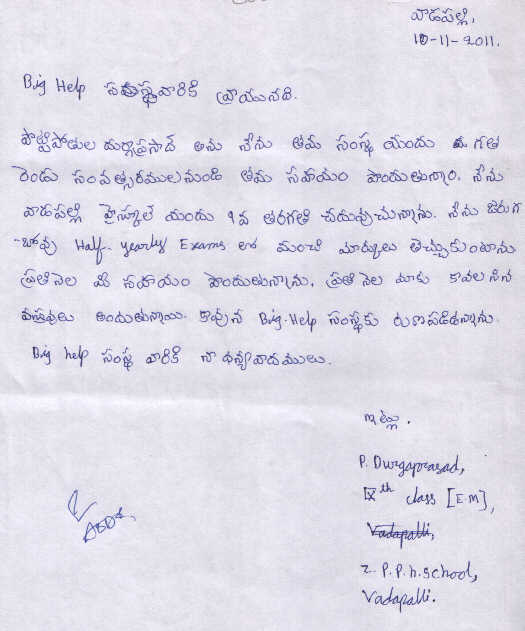 వాడపల్లి,
10-11-2011.
Big Help సంస్థవారికి వ్రాయునది.
పొట్టిపోతుల దుర్గాప్రసాద్ అను నేను తమ సంస్థ యందు గత
రెండు సంవత్సరములనుండి తమ సహాయం పొందుతున్నాం. నేను
వాడపల్లి హైస్కూల్ యందు 9వ తరగతి చదువుచున్నాను. నేను జరుగ
-బోవు Half-yearly Exams లో మంచి మార్కులు తెచ్చుకుంటాను
ప్రతినెల మీ సహాయం పొందుతున్నాను. ప్రతి నెల మాకు కావలసిన
వస్తువులు అందుతున్నాయి. కావున Big-Help సంస్థకు రుణపడివున్నాను.
Big help సంస్థ వారికి నా ధన్యవాదములు.
ఇట్లు.
P. Durgaprasad,
IXth class [E.M],
Vadapalli,
Z.P.P.h.school,
Vadapalli.